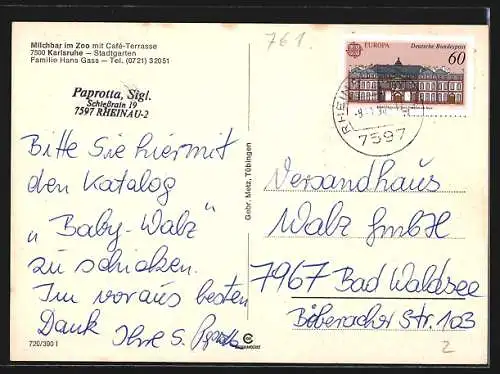 Milchbar im Zoo mit Café-Terrasse
7500 Karlsruhe – Stadtgarten
Familie Hans Gass – Tel. (0721) 32051
Paprotta, Sigl.
Schießrain 19
7597 RHEINAU-2
Bitte Sie hiermit
den Katalog
„Baby-Walz“
zu schicken.
Im voraus besten
Dank Ihre S. Paprotta
720/390 I
Gebr. Metz, Tübingen
761.
EUROPA Deutsche Bundespost
60
RHEIN
7597
Versandhaus
Walz GmbH
7967 Bad Waldsee
Biberacher Str. 103
2